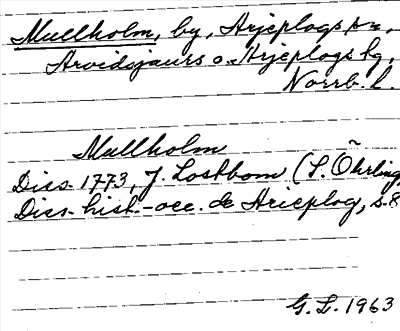 Mullholm, by, Arjeplogs sn,
Arvidsjaurs o. Arjeplogs tg,
Norrb. l.
Mullholm
Diss. 1773, J. Lostbom (L. Öhrling,
Diss. hist.-oec. de Arieplog, s. 8
G. L. 1963